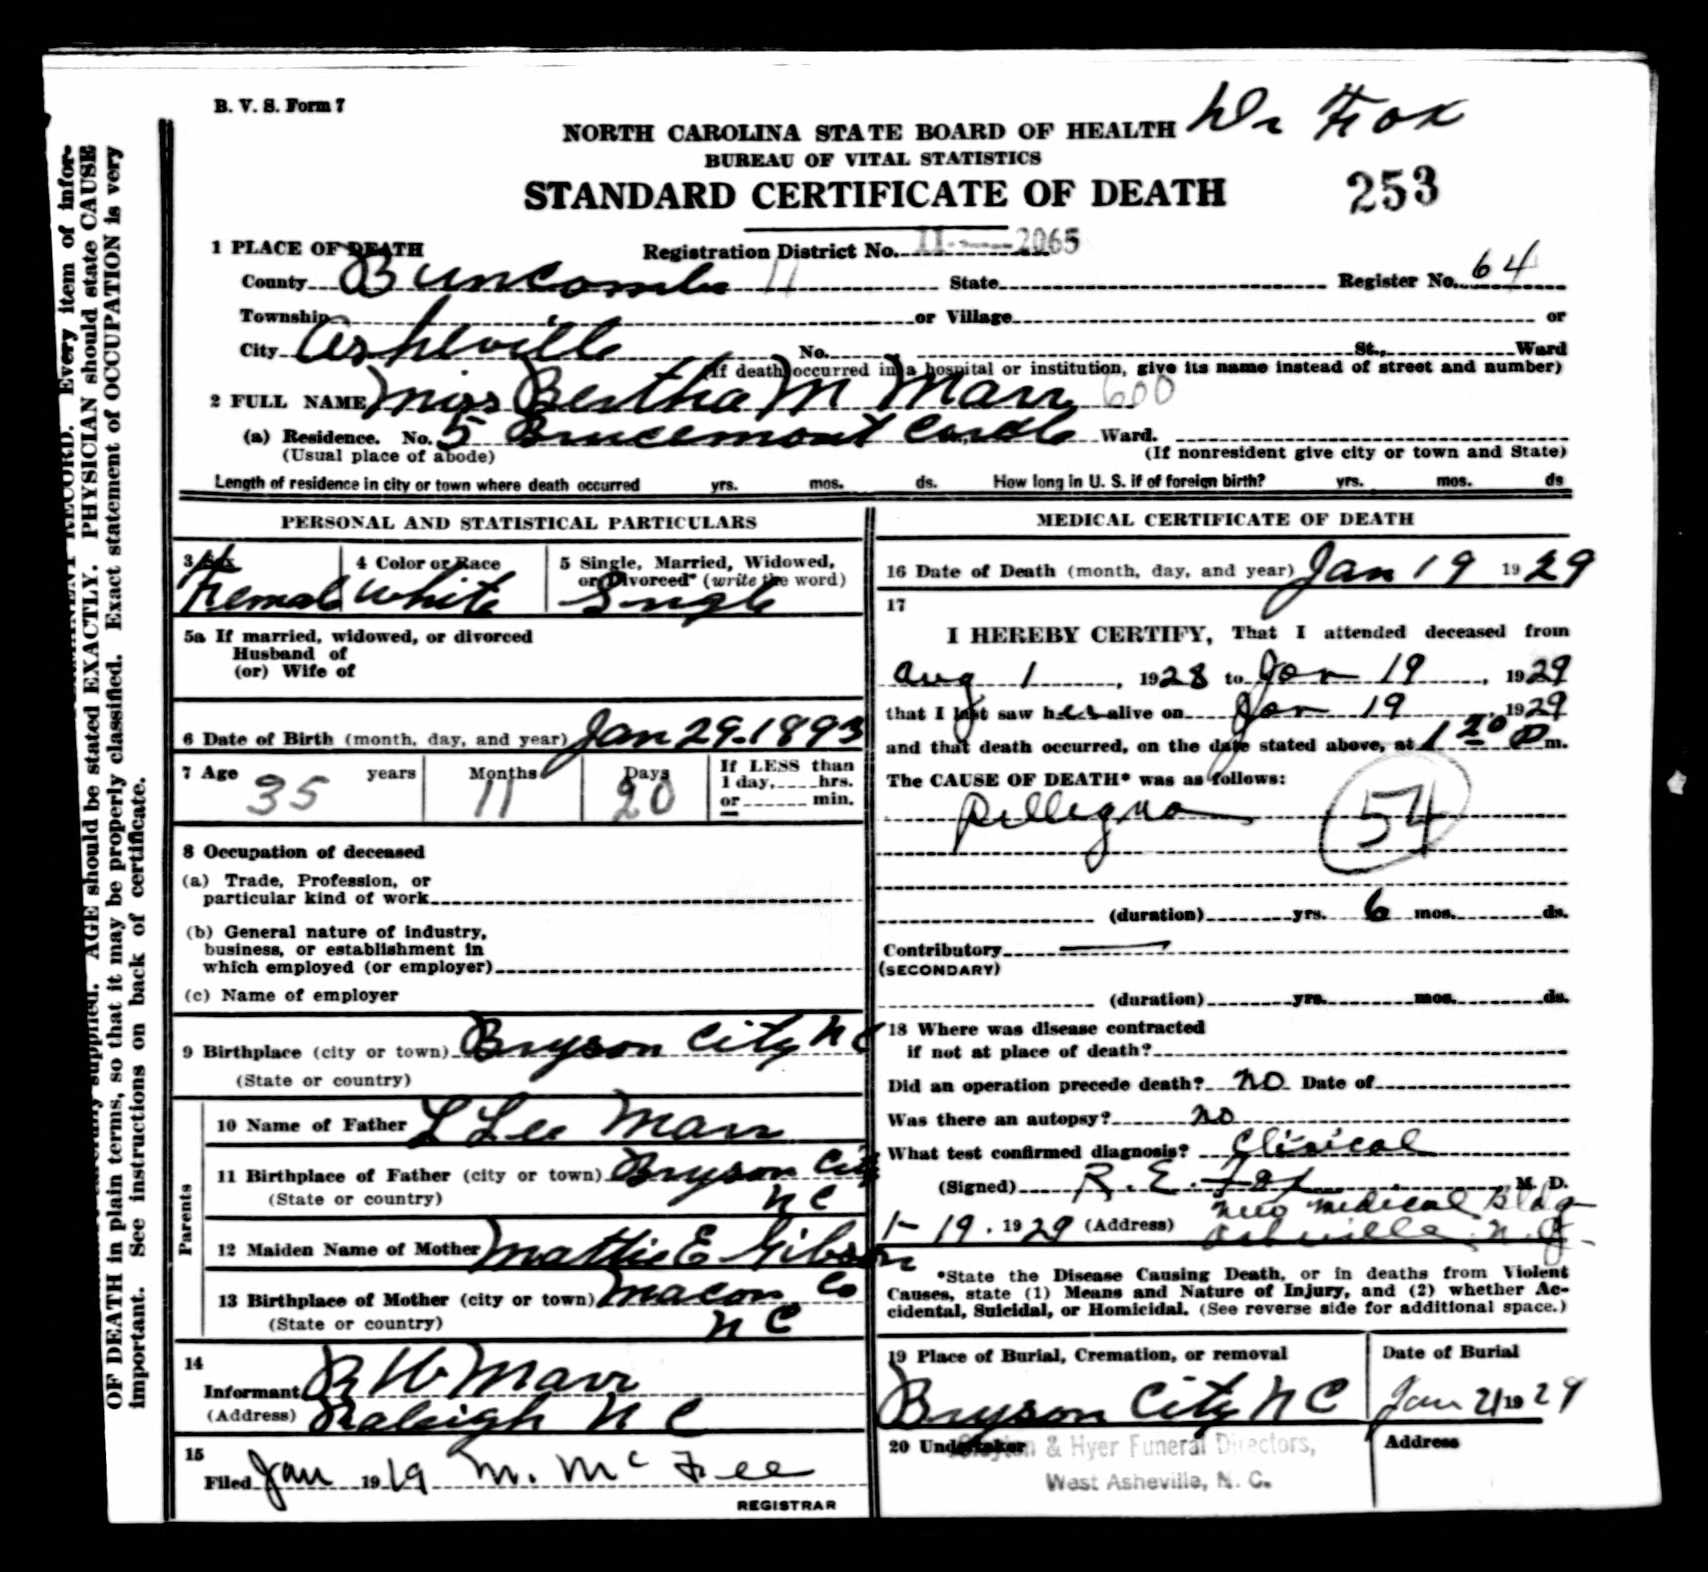 B. V. S. Form 7
Dr Fox
NORTH CAROLINA STATE BOARD OF HEALTH
BUREAU OF VITAL STATISTICS
STANDARD CERTIFICATE OF DEATH
253
1 PLACE OF DEATH
Registration District No. 11 2065
County Buncombe 11 State Register No. 64
Township or Village or
City Asheville No. St., Ward
(If death occurred in a hospital or institution, give its name instead of street and number)
2 FULL NAME Miss Bertha M Marr 600
(a) Residence. No. 5 Brucemont Circle Ward.
(Usual place of abode) (If nonresident give city or town and State)
Length of residence in city or town where death occurred yrs. mos. ds. How long in U. S. if of foreign birth? yrs. mos. ds
PERSONAL AND STATISTICAL PARTICULARS
3 Sex 4 Color or Race 5 Single, Married, Widowed,
or Divorced (write the word)
Female White Single
5a If married, widowed, or divorced
Husband of
(or) Wife of
6 Date of Birth (month, day, and year) Jan 29-1893
7 Age 35 years Months 11 Days 20 If LESS than
1 day, hrs.
or min.
8 Occupation of deceased
(a) Trade, Profession, or
particular kind of work
(b) General nature of industry,
business, or establishment in
which employed (or employer)
(c) Name of employer
9 Birthplace (city or town) Bryson City N C
(State or country)
Parents
10 Name of Father L Lee Marr
11 Birthplace of Father (city or town) Bryson City
(State or country) N C
12 Maiden Name of Mother Mattie E Gibson
13 Birthplace of Mother (city or town) Macon Co
(State or country) N C
14
Informant R W Marr
(Address) Raleigh N C
15
Filed Jan 19 19 M. McFee
REGISTRAR
MEDICAL CERTIFICATE OF DEATH
16 Date of Death (month, day, and year) Jan 19 1929
17
I HEREBY CERTIFY, That I attended deceased from
Aug 1, 1928 to Jan 19, 1929
that I last saw her alive on Jan 19, 1929
and that death occurred, on the date stated above, at 1 20 P m.
The CAUSE OF DEATH* was as follows:
Pellegra 54
(duration) yrs. 6 mos. ds.
Contributory
(SECONDARY)
(duration) yrs. mos. ds.
18 Where was disease contracted
if not at place of death?
Did an operation precede death? No Date of
Was there an autopsy? No
What test confirmed diagnosis? Clinical
(Signed) R. E. Fox M. D.
1-19. 1929 (Address) New Medical Bldg
Asheville N.C.
*State the Disease Causing Death, or in deaths from Violent
Causes, state (1) Means and Nature of Injury, and (2) whether Ac-
cidental, Suicidal, or Homicidal. (See reverse side for additional space.)
19 Place of Burial, Cremation, or removal Date of Burial
Bryson City N C Jan 21 1929
20 Undertaker & Hyer Funeral Directors, Address
West Asheville, N. C.
PERMANENT RECORD. Every item of infor-
carefully supplied. AGE should be stated EXACTLY. PHYSICIAN should state CAUSE
OF DEATH in plain terms, so that it may be properly classified. Exact statement of OCCUPATION is very
important. See instructions on back of certificate.